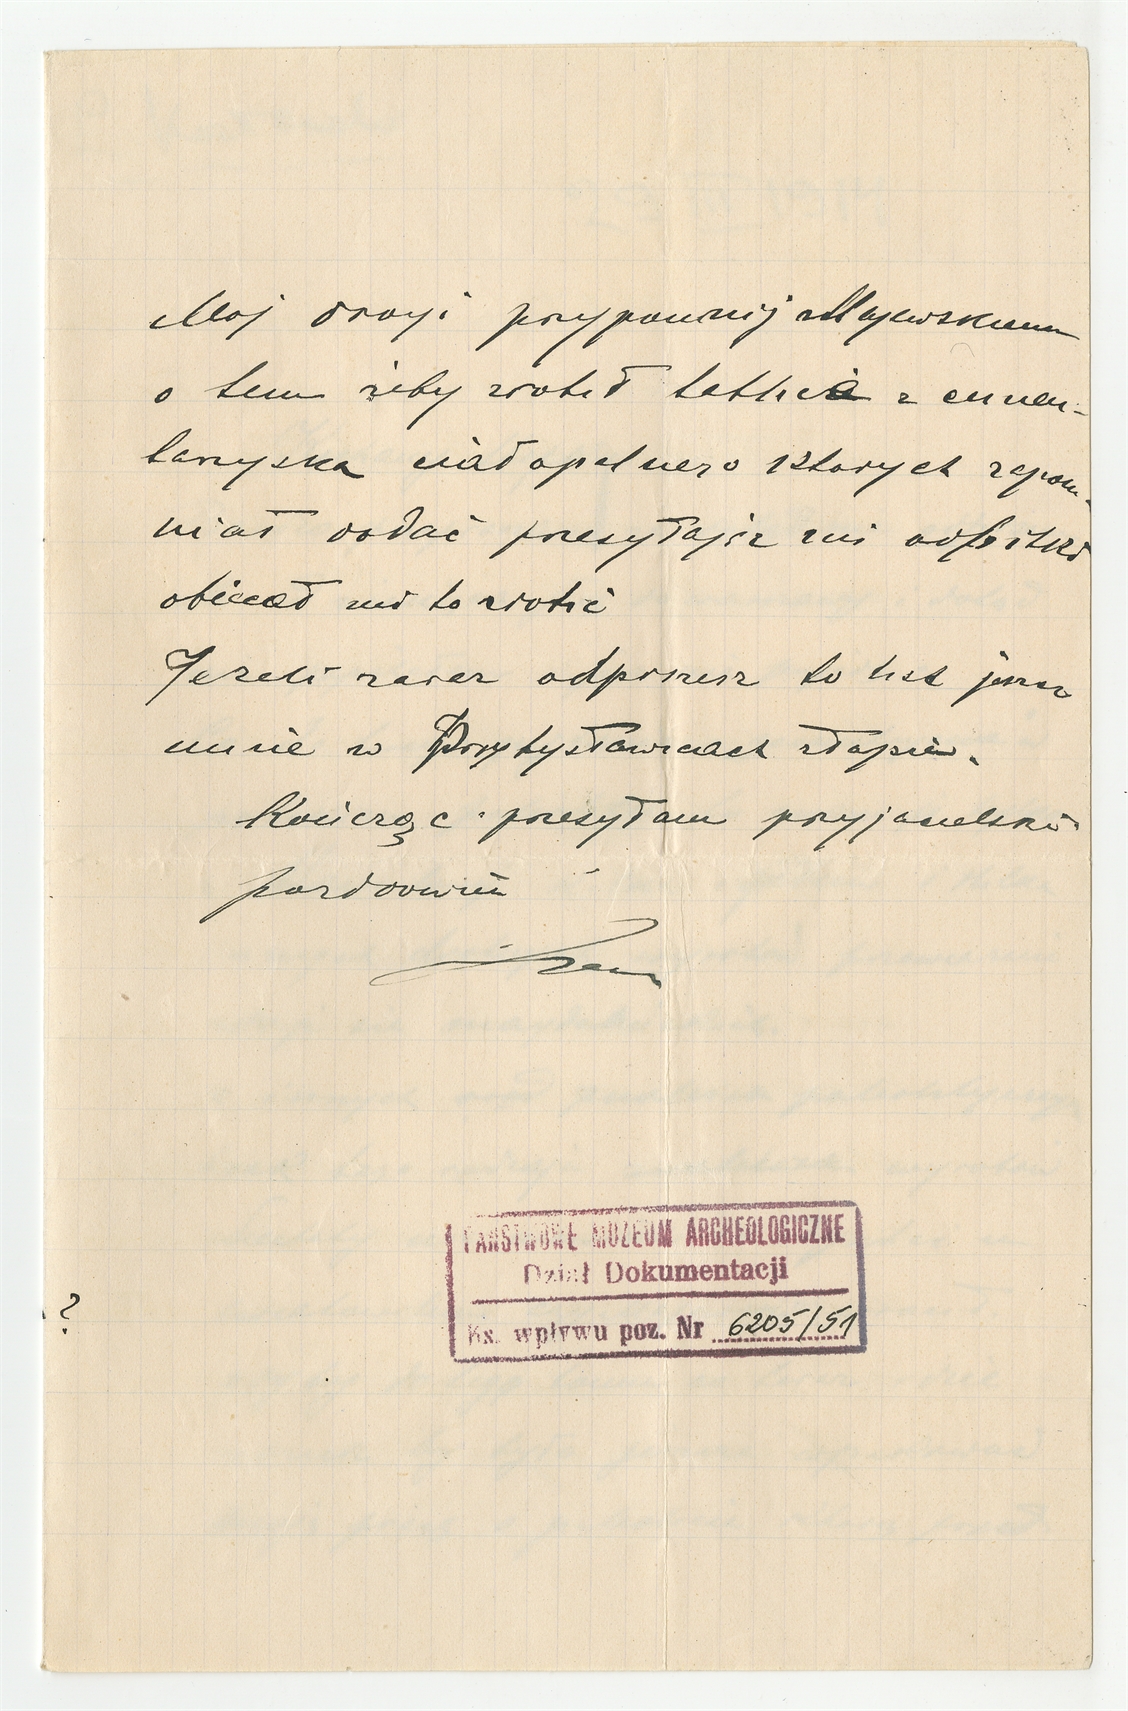 Moj drogi przypomnij Majewskiemu
o tem żeby zrobił tablice z cmen-
tarzyska ciałopalnego ktorych zapom-
niał dodać przesyłając mi odbitki
obiecał mi to zrobić
Jezeli zaraz odpiszesz to list jeszcze
mnie w Przybysławicach złapie.
Kończąc przesyłam przyjacielskie
pozdrowienie
PAŃSTWOWE MUZEUM ARCHEOLOGICZNE
Dział Dokumentacji
Ks. wpływu poz. Nr 6205/51
?